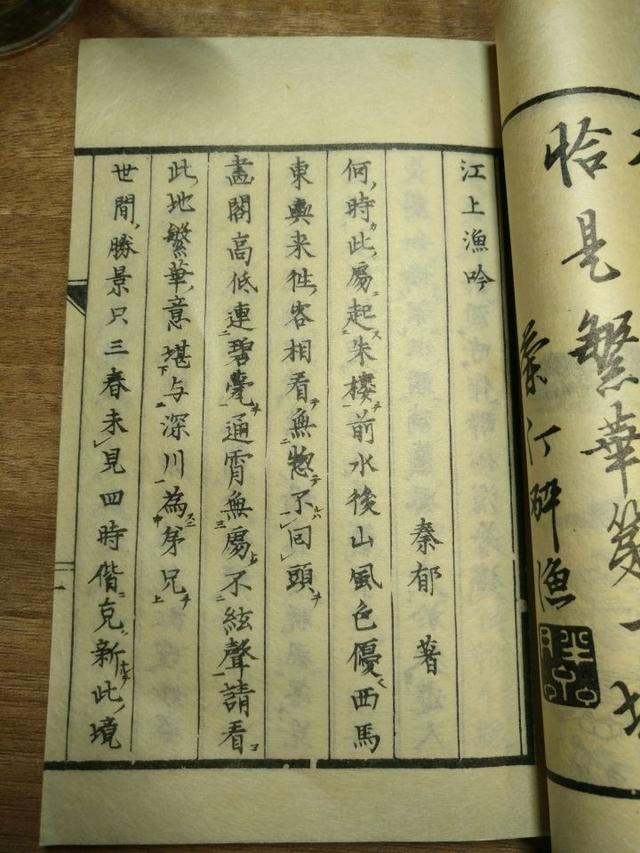 恰是繁華第一
秦汀醉漁
江上漁吟
秦郁著
何時此處起朱樓前水後山風色優西馬
東輿来徃客相看無惣不回頭
畫閣高低連碧甍通宵無處不絃聲請看
此地繁華意堪与深川為弟兄
世間勝景只三春未見四時偕克新此境